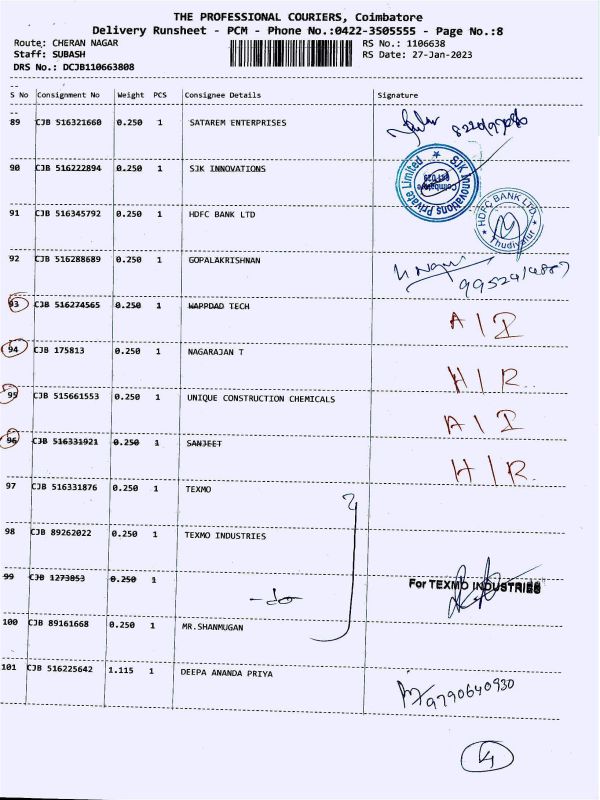 THE PROFESSIONAL COURIERS, Coimbatore
Delivery Runsheet - PCM - Phone No.:0422-3505555 - Page No.:8
Route: CHERAN NAGAR RS No.: 1106638
Staff: SUBASH RS Date: 27-Jan-2023
DRS No.: DCJB110663808
S No Consignment No Weight PCS Consignee Details Signature
89 CJB 516321660 0.250 1 SATAREM ENTERPRISES
90 CJB 516222894 0.250 1 SJK INNOVATIONS SJK Innovations Private Limited Coimbatore
91 CJB 516345792 0.250 1 HDFC BANK LTD HDFC BANK LTD. Thudiyalur
92 CJB 516288689 0.250 1 GOPALAKRISHNAN
93 CJB 516274565 0.250 1 WAPPDAD TECH A/I
94 CJB 175813 0.250 1 NAGARAJAN T H/R.
95 CJB 515661553 0.250 1 UNIQUE CONSTRUCTION CHEMICALS A/I
96 CJB 516331921 0.250 1 SANJEET H/R.
97 CJB 516331876 0.250 1 TEXMO
98 CJB 89262022 0.250 1 TEXMO INDUSTRIES
99 CJB 1273053 0.250 1 -do- For TEXMO INDUSTRIES
100 CJB 89161668 0.250 1 MR.SHANMUGAN
101 CJB 516225642 1.115 1 DEEPA ANANDA PRIYA 9790640930